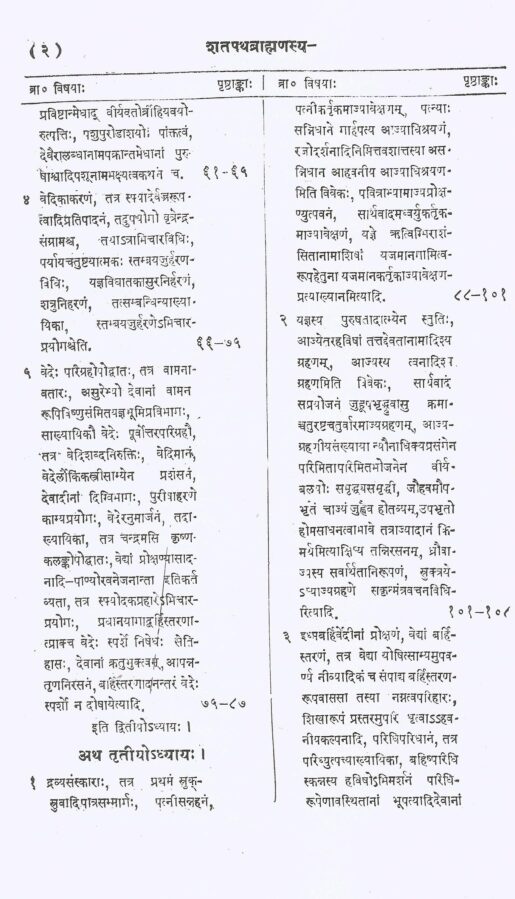 ( २ )
शतपथब्राह्मणस्य-
ब्रा० विषयाः पृष्ठाङ्काः
प्रविष्टान्मेधाद् वीर्यवतोर्व्रीहियवयो-
रुत्पत्तिः, पशुपुरोडाशयोः पांक्तत्वं,
देवैरालब्धानामपक्रान्तमेधानां पुरु-
षाश्वादिपशूनामभक्ष्यत्वकथनं च. ६१-६५
४ वेदिकाकरणं, तत्र स्फ्यादेर्वज्ररूप-
त्वादिप्रतिपादनं, तदुपयोगो वृत्रेन्द्र-
संग्रामश्च, तथाऽत्राभिचारविधिः,
पर्यायचतुष्टयात्मकः स्तम्बयजुर्हरण-
विधिः, यज्ञविघातकासुरनिर्हरणं,
शत्रुनिर्हरणं, तत्सम्बन्धिन्याख्या-
यिका, स्तम्बयजुर्हरणेऽभिचार-
प्रयोगश्चेति. ६६-७१
५ वेदेः परिग्रहोपोद्घातः, तत्र वामना-
वतारः, असुरेभ्यो देवानां वामन
रूपिविष्णुसंमितयज्ञभूमिप्रविभागः,
साख्यायिकौ वेदेः पूर्वोत्तरपरिग्रहौ,
तत्र वेदिशब्दनिरुक्तिः, वेदिमानं,
वेदेर्लौकिकस्त्रीसाम्येन प्रशंसनं,
देवादीनां दिग्विभागः, पुरीषाहरणे
काम्यप्रयोगः, वेदेरनुमार्जनं, तदा-
ख्यायिका, तत्र चन्द्रमसि कृष्ण-
कलङ्कोपोद्घातः, वेद्यां प्रोक्षण्यासाद-
नादि-पाण्योरवनेजनान्ता इतिकर्त
व्यता, तत्र स्फ्योदकप्रहारेऽभिचार-
प्रयोगः, प्रधानयागाद्बर्हिस्तरणा-
त्प्राक्च वेदेः स्पर्शे निषेधः सेति-
हासः, देवानां क्रतुभुक्त्वम्, आपन्न-
तृणनिरसनं, बर्हिस्तरणादनन्तरं वेदेः
स्पर्शो न दोषायेत्यादि. ७१-८७
इति द्वितीयोऽध्यायः ।
अथ तृतीयोऽध्यायः ।
१ द्रव्यसंस्काराः, तत्र प्रथमं स्रुक्-
स्रुवादिपात्रसम्मार्गः, पत्नीसन्नहनं,
ब्रा० विषयाः पृष्ठाङ्काः
पत्नीकर्तृकमाज्यावेक्षणम्, पत्न्याः
सन्निधाने गार्हपत्य आज्याधिश्रयणं,
रजोदर्शनादिनिमित्तवशात्तस्या अस-
न्निधान आहवनीय आज्याधिश्रयण-
मिति विवेकः, पवित्राभ्यामाज्यप्रोक्ष-
ण्युत्पवनं, सार्थवादमध्वर्युकर्तृक-
माज्यावेक्षणं, यज्ञे ऋत्विग्भिराशं-
सितानामाशिषां यजमानगामित्व-
रूपहेतुना यजमानकर्तृकाज्यावेक्षण-
प्रत्याख्यानमित्यादि. ८८-१०१
२ यज्ञस्य पुरुषतादात्म्येन स्तुतिः,
आज्येतरहविषां तत्तद्देवतानामादिश्य
ग्रहणम्, आज्यस्य त्वनादिश्य
ग्रहणमिति विवेकः, सार्थवादं
सप्रयोजनं जुहूपभृद्ध्रुवासु क्रमा-
श्चतुरष्टचतुर्वारमाज्यग्रहणम्, आज्य-
ग्रहणीयसंख्याया न्यौनाधिक्यप्रसंगेन
परिमितापरिमितभोजनेन वीर्य-
बलयोः समृद्ध्यसमृद्धी, जौहवमौप-
भृतं चाज्यं जुह्वैव होतव्यम्, उपभृतो
होमसाधनत्वाभावे तत्राज्यादानं कि-
मर्थमित्याक्षिप्य तन्निरसनम्, ध्रौवा-
ज्यस्य सर्वार्थतानिरूपणं, स्रुक्त्रये-
ऽप्याज्यग्रहणे सकृन्मंत्रवचनविधि-
रित्यादि. १०१-१०८
३ इध्मबर्हिर्वेदीनां प्रोक्षणं, वेद्यां बर्हि-
स्तरणं, तत्र वेद्या योषित्साम्यमुपव-
र्ण्य नीव्यादिकं च संपाद्य बर्हिस्तरण-
रूपवाससा तस्या नग्नत्वपरिहारः,
शिखारूपं प्रस्तरमुपरि धृत्वाऽऽहव-
नीयकल्पनादि, परिधिपरिधानं, तत्र
परिध्युत्पत्त्याख्यायिका, बहिष्परिधि
स्कन्नस्य हविषोऽभिमर्शनं पारिधि-
रूपेणावस्थितानां भूपत्यादिदेवानां